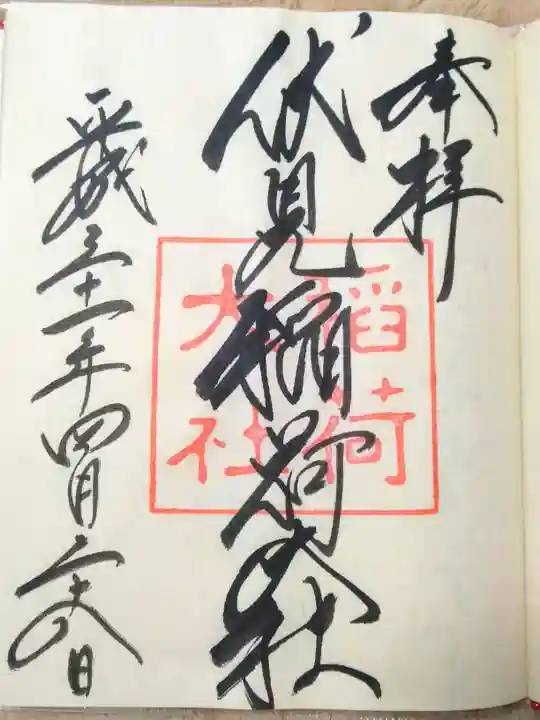 奉拝
伏見稲荷大社
稲荷
大社
平成三十一年四月二十八日